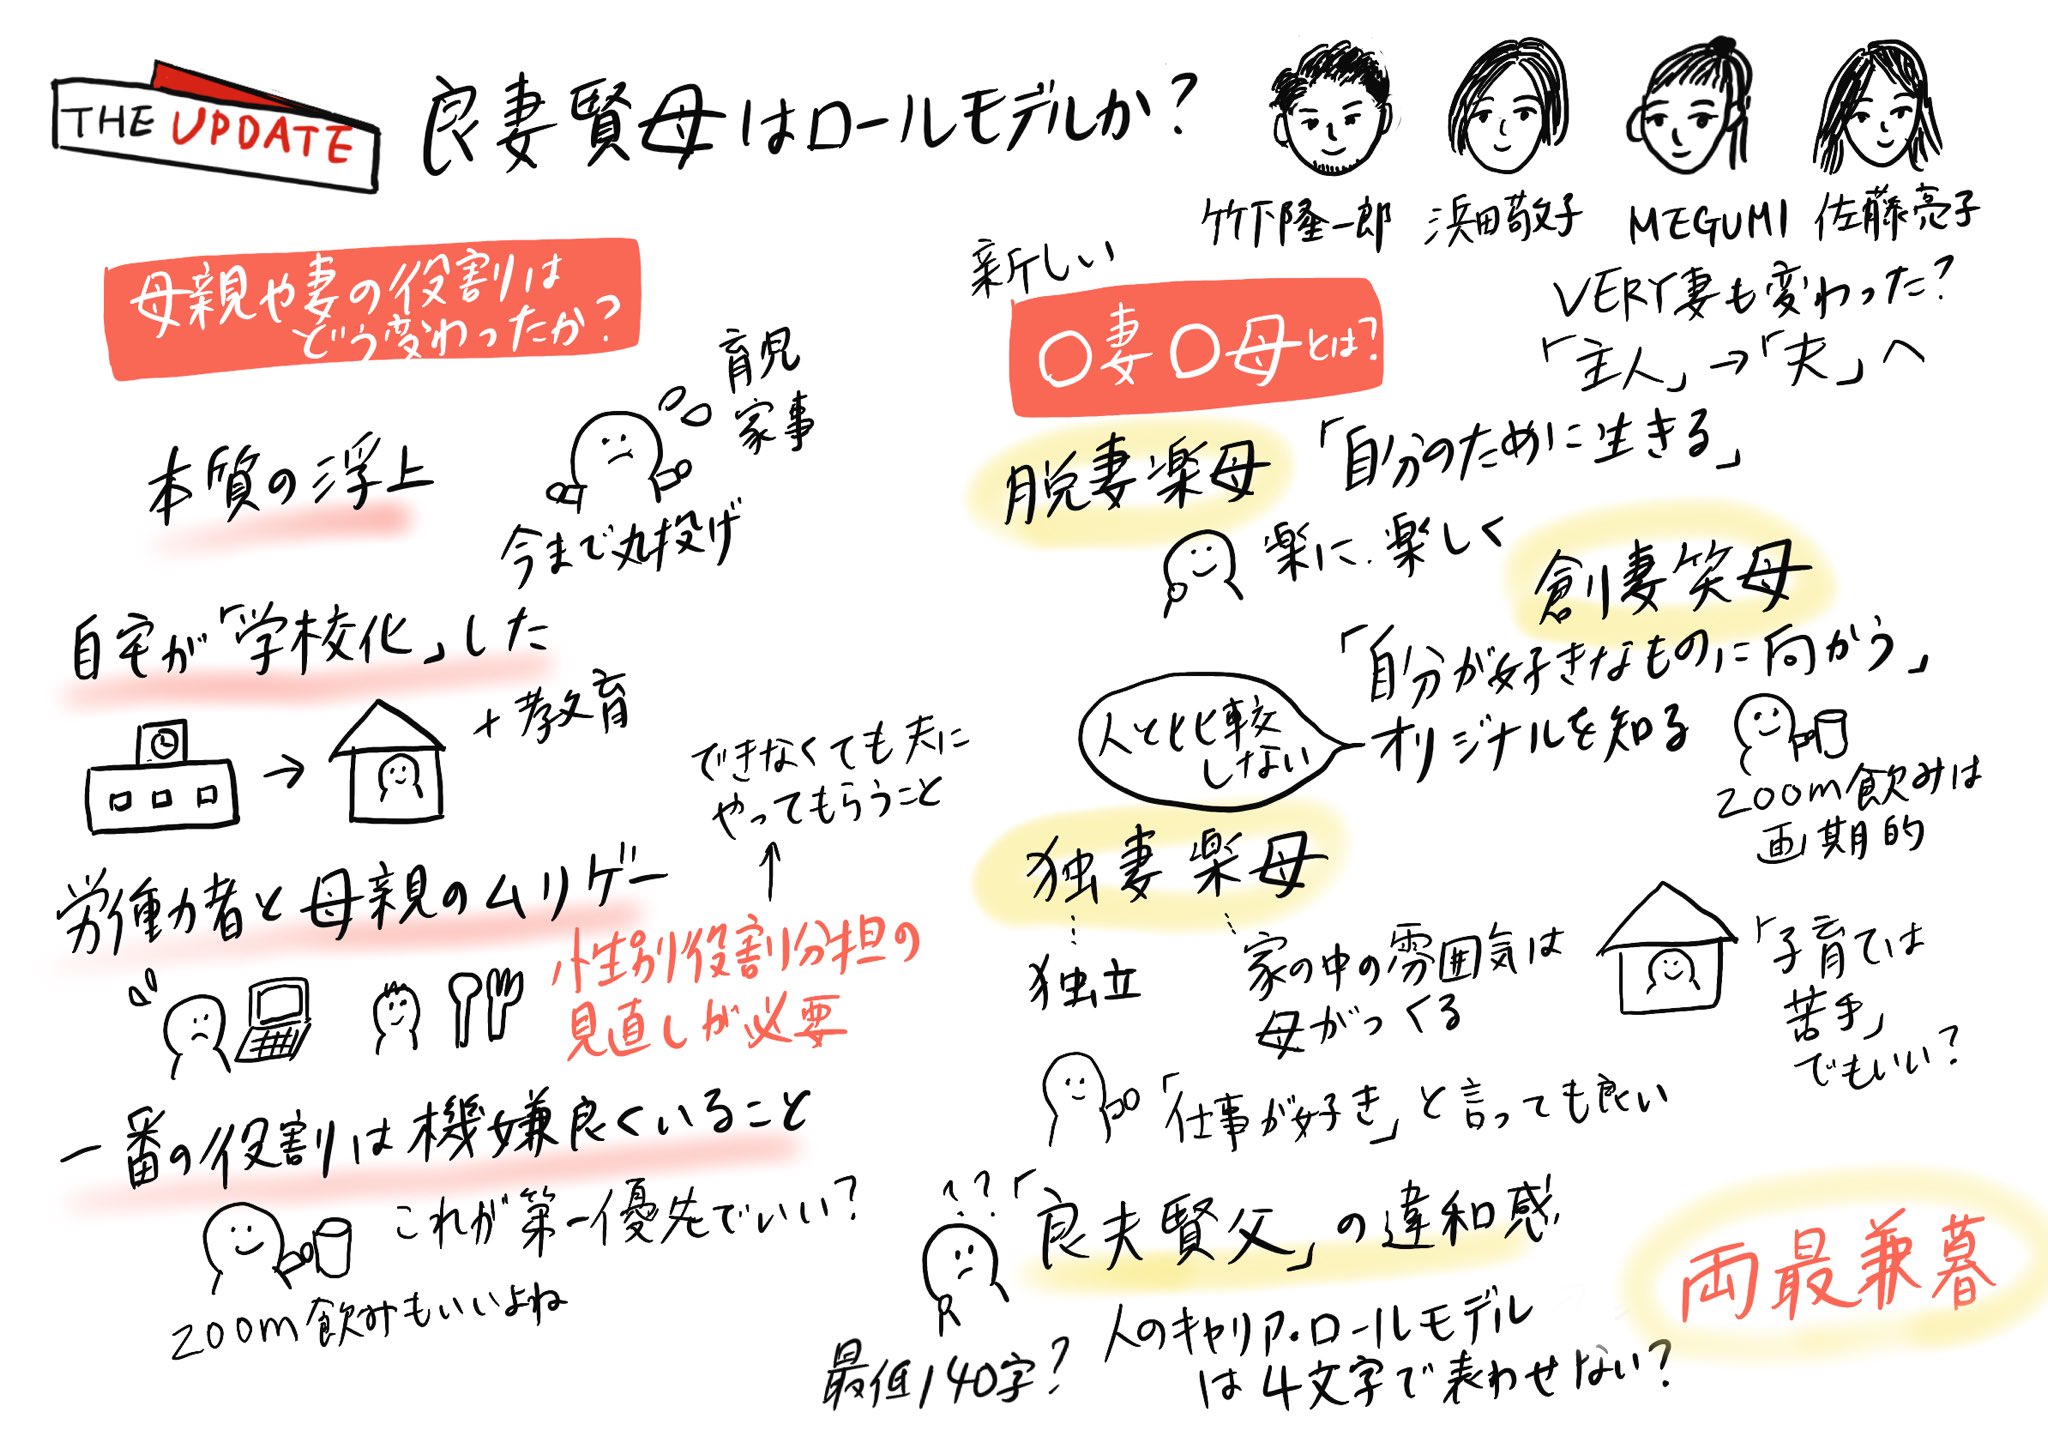 THE UPDATE
良妻賢母はロールモデルか?
竹下隆一郎
浜田敬子
MEGUMI
佐藤亮子
母親や妻の役割は
どう変わったか?
本質の浮上
育児
家事
今まで丸投げ
自宅が「学校化」した
+教育
労働者と母親のムリゲー
できなくても夫に
やってもらうこと
性別役割分担の
見直しが必要
一番の役割は機嫌良くいること
これが第一優先でいい?
200m飲みもいいよね
新しい
〇妻〇母とは?
VERY妻も変わった?
「主人」→「夫」へ
脱妻楽母
「自分のために生きる」
楽に、楽しく
創妻笑母
「自分が好きなものに向かう」
人と比較
しない
オリジナルを知る
200m飲みは
画期的
独妻楽母
独立
家の中の雰囲気は
母がつくる
「子育ては
苦手」
でもいい?
「仕事が好き」と言っても良い
??
「良夫賢父」の違和感
最低140字?
人のキャリア・ロールモデル
は4文字で表わせない?
両最兼暮